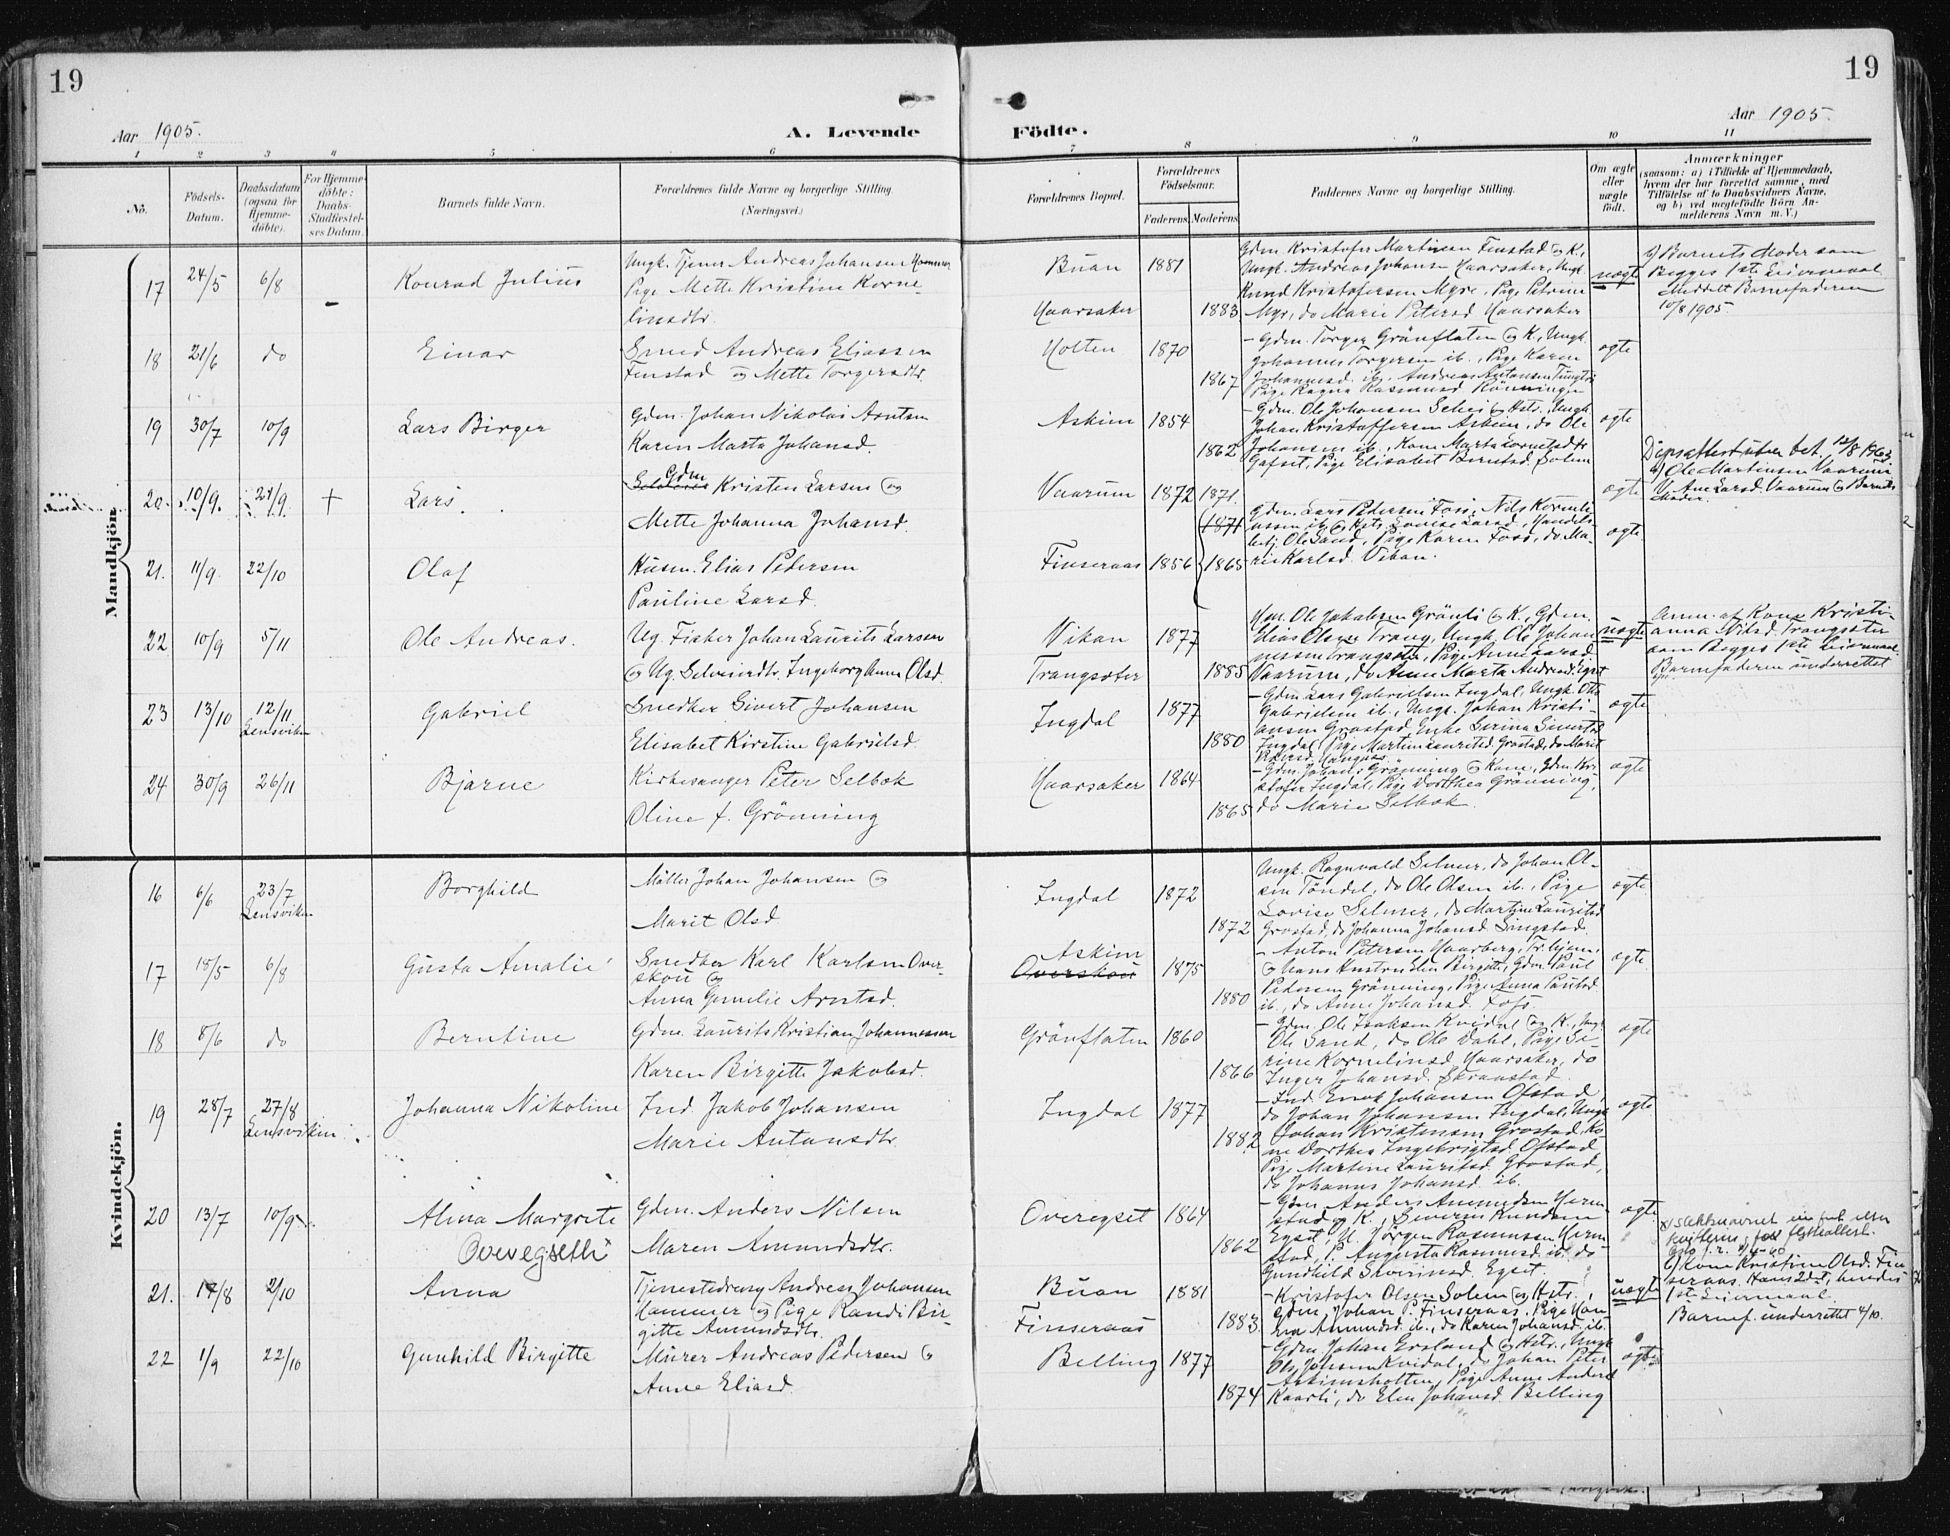 19
19
Aar 1905.
A. Levende
Födte.
Aar 1905.
1 2 3 4 5 6 7 8 9 10 11
No.
Födsels-
Datum.
Daabsdatum
(ogsaa for
Hjemme-
döbte).
For Hjemme-
döbte:
Daabs-
Stadfæstel-
ses Datum.
Barnets fulde Navn.
Forældrenes fulde Navne og borgerlige Stilling.
(Næringsvei.)
Forældrenes Bopæl.
Forældrenes
Födselsaar.
Faderens. Moderens.
Faddernes Navne og borgerlige Stilling.
Om ægte
eller
uægte
födt.
Anmærkninger
(saasom: a) i Tilfælde af Hjemmedaab,
hvem der har forrettet samme, med
Tilföielse af to Daabsvidners Navne,
og b) ved uægtefödte Börn An-
melderens Navn m. V.)
Mandkjön.
17 24/5 6/8 - Konrad Julius
Ungk. Tjener Andreas Johansen Hammer
Pige Mette Kristine Korne-
liusdtr.
Buan 1881
Haarsaker 1883
Gdm. Kristofer Martinsen Finstad og K.,
Ungk. Andreas Johansen Haarsaker, Ungk.
Knud Kristofersen Myre, Pige Petrine
Myr, do Marie Petersd Haarsaker
uægte
Barnets Moder som
Begges 1ste Leiermaal.
Meddelt Barnefaderen
10/8 1905.
18 21/6 do Einar
Smed Andreas Eliassen
Finstad og Mette Torgersdtr.
Holten 1870
1867
- Gdm. Torger Grönflaten og K., Ungk.
Johannes Torgersen ib., Pige Karen
Johannesd. ib., Andreas Antonsen
Pige Ragna Rasmusd Rönningen
ægte
19 30/7 10/9 Lars Birger
Gdm. Johan Nikolai Arntsen
Karen Marta Johansd.
Askim 1854
1862
- Gdm. Ole Johansen Selei og Hstr., Ungk.
Johan Kristoffersen Askim, do Ole
Johansen ib., Kone Marta
Gafset, Pige Elisabet Berntsd. Solem
ægte
20. 10/9. 24/9 + Lars
Gdm
Kristen Larsen og
Mette Johanna Johansd.
Vaarum 1872 1871.
1871
ægte
Ole Martinsen Vaarum
Ane Larsd. Vaarum og Barnets
Moder.
21. 11/9 22/10 Olaf
Husm. Elias Pedersen
Pauline Larsd.
Finseraas 1856 1865
Gdm. Lars Pedersen Foss, Nils Korneli-
ussen ib. og Hstr. Lovise Larsd., Handels-
betj. Ole Sand, Pige Karen Foss, do Ma-
rie Karlsd. Vikan.
ægte
22 10/9 5/11 Ole Andreas.
Ug. Fisker Johan Laurits Larsen
og Ug. Selveierdtr. Ingeborg Anna Olsd.
Vikan 1877
Trangsæter 1885
Hm. Ole Jakobsen Grönli og K., Gdm.
Elias Olsen Trang, Ungk. Ole Johan-
nessen Trangsæter, Pige Anne Larsd
Vaarum, do Anne Marta Andreasd. Egset
uægte
Anm. af Kone Kristi-
anna Nilsd. Trangsæter
som Begges 1ste Leiermaal
Barnefaderen underrettet
23 13/10 12/11
Lensviken
Gabriel
Snedker Sivert Johansen
Elisabet Kirstine Gabrielsd.
Ingdal 1877
1880
- Gdm. Lars Gabrielsen Ingdal, Ungk. Ole
Gabrielsen ib., Ungk. Johan Kristi-
ansen Grostad, Enke Serine Sivertsd
Ingdal, Pige Martine Lauritsd. Grostad, do Marit
ægte
24 30/9 26/11 Bjarne
Kirkesanger Peter Selbæk
Oline f. Grönning
Haarsaker 1864
1865
- Gdm. Johan Grönning og Kone, Gdm. Kri-
stofer Ingdal, Pige Dorthea Grönning,
do Marie Selbæk
ægte
Kvindekjön.
16 6/6 23/7
Lensviken
Borghild
Möller Johan Johansen og
Marit Olsd
Ingdal 1872
1872
Ungk. Ragnvald Selmer, do Johan Ol-
sen Töndel, do Ole Olsen ib., Pige
Lovise Selmer, do Martine Lauritsd
Grostad, do Johanna Johansd Singstad.
ægte
17 18/5 6/8 Gusta Amalie
Snedker Karl Karlsen Over-
skou og
Anna Gunelie Arntsd.
Askim
Overskou 1875
1880
- Anton Petersen Haarberg, Tr.hjem,
og hans Hustru Elen Birgitte, Gdm. Paul
Pedersen Grönning, Pige Anna Paulsd.
ib., do Anne Johansd. Foss.
ægte
18 8/6 do Berntine
Gdm. Laurits Kristian Johannessen
Karen Birgitte Jakobsd.
Grönflaten 1860
1866
- Gdm. Ole Isaksen Kveidal og K., Ungk
Ole Sand, do Ole Dahl, Pige Se-
rine Korneliusd. Haarsaker, do
Inger Johansd. Skraastad.
ægte
19 28/7 27/8
Lensviken
Johanna Nikoline
Ind. Jakob Johansen
Marie Antonsdtr.
Ingdal 1877
1882
- Ind. Enok Johansen Ofstad,
do Johan Johansen Ingdal, Ungk
Johan Kristensen Grostad, Ko-
ne Dorthea Ingebrigtsd. Ofstad
Pige Martine Lauritsd Grostad,
do Johanna Johansd. ib.
ægte
20 13/7 10/9 Alina Margrete
Overegseth
Gdm. Anders Nilsen
Maren Amundsdtr.
Overegset 1864
1862
- Gdm. Anders Amundsen Herm-
stad og K., Severin Knudsen
Egset, U. Jörgen Rasmussen Herm-
stad, P. Augusta Rasmusd. ib. do
Gundhild Severinsd. Egset.
ægte
21. 17/8 2/10 Anna
Tjenestedreng Andreas Johansen
Hammer og Pige Randi Bir-
gitte Amundsdtr.
Buan 1881
Finseraas 1883
- Kristofer Olsen Solem og Hstr.,
Gdm. Johan P. Finseraas, Pige
Amundsd. ib., do Karen Johansd. ib.
uægte
Kone Kristine Olsd. Fin-
seraas. Hans 2det, hendes
1ste Leiermaal.
Barnef. underrettet 4/10.
22 1/9 22/10 Gunhild Birgitte
Murer Andreas Pedersen og
Anne Eliasd.
Belling 1877
1874
- Gdm. Johan Ersland og Hstr., Ungk
Ole Johnsen Kvidal, do Johan Peter
Askimsholten, Pige Anne Andersd
Kaarli, do Elen Johansd. Belling
ægte